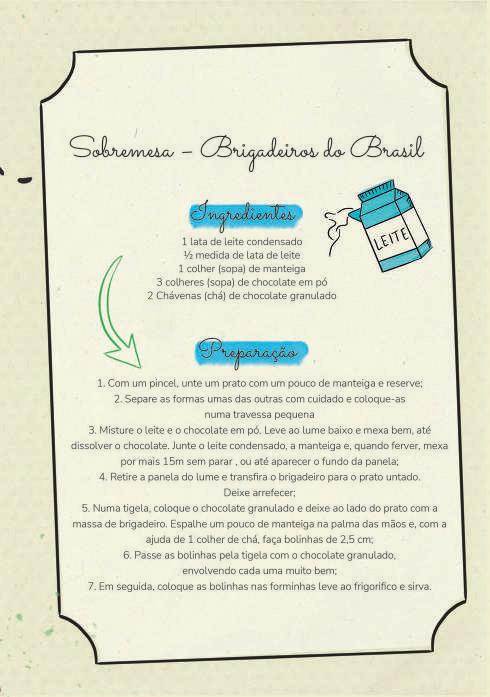 Sobremesa – Brigadeiros do Brasil
Ingredientes
LEITE
1 lata de leite condensado
½ medida de lata de leite
1 colher (sopa) de manteiga
3 colheres (sopa) de chocolate em pó
2 Chávenas (chá) de chocolate granulado
Preparação
1. Com um pincel, unte um prato com um pouco de manteiga e reserve;
2. Separe as formas umas das outras com cuidado e coloque-as
numa travessa pequena
3. Misture o leite e o chocolate em pó. Leve ao lume baixo e mexa bem, até
dissolver o chocolate. Junte o leite condensado, a manteiga e, quando ferver, mexa
por mais 15m sem parar , ou até aparecer o fundo da panela;
4. Retire a panela do lume e transfira o brigadeiro para o prato untado.
Deixe arrefecer;
5. Numa tigela, coloque o chocolate granulado e deixe ao lado do prato com a
massa de brigadeiro. Espalhe um pouco de manteiga na palma das mãos e, com a
ajuda de 1 colher de chá, faça bolinhas de 2,5 cm;
6. Passe as bolinhas pela tigela com o chocolate granulado,
envolvendo cada uma muito bem;
7. Em seguida, coloque as bolinhas nas forminhas leve ao frigorifico e sirva.